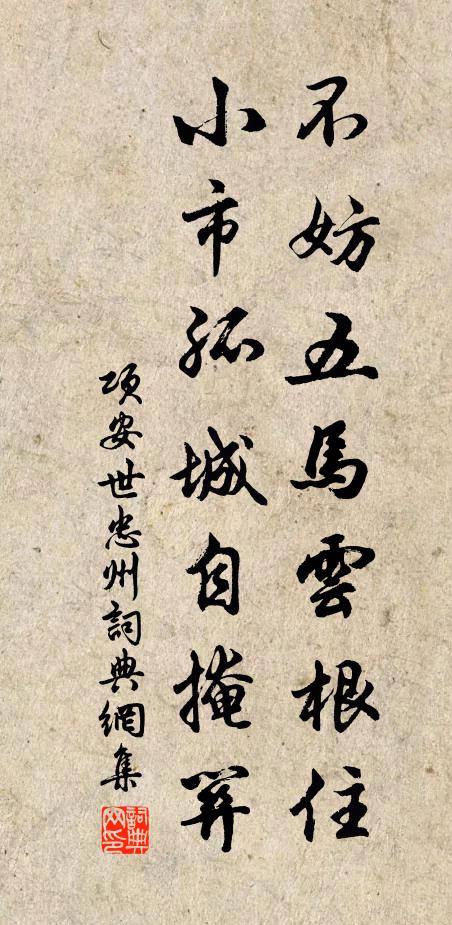 不妨五馬雲根住
小市孤城自掩開
項安世忠州詞典網集
詞典
网印